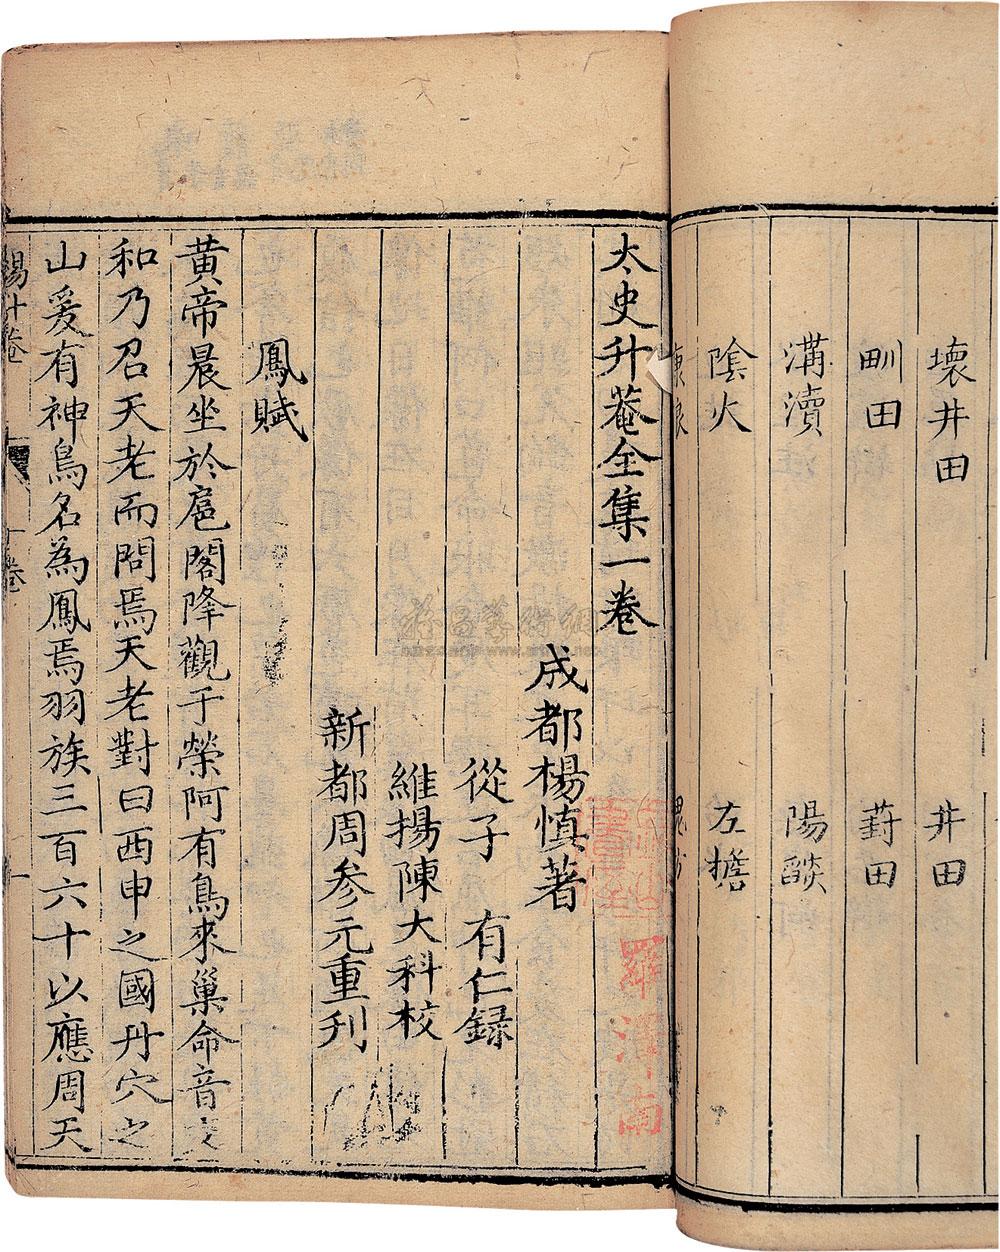 壞井田　井田
甽田　葑田
溝瀆　陽燄
陰火　左擔
太史升菴全集一卷
成都楊慎著
從子　有仁録
維揚陳大科校
新都周參元重刊
鳳賦
黄帝晨坐於扈閣降觀于榮阿有鳥來巢命音交
和乃召天老而問焉天老對曰西申之國丹穴之
山爰有神鳥名為鳳焉羽族三百六十以應周天